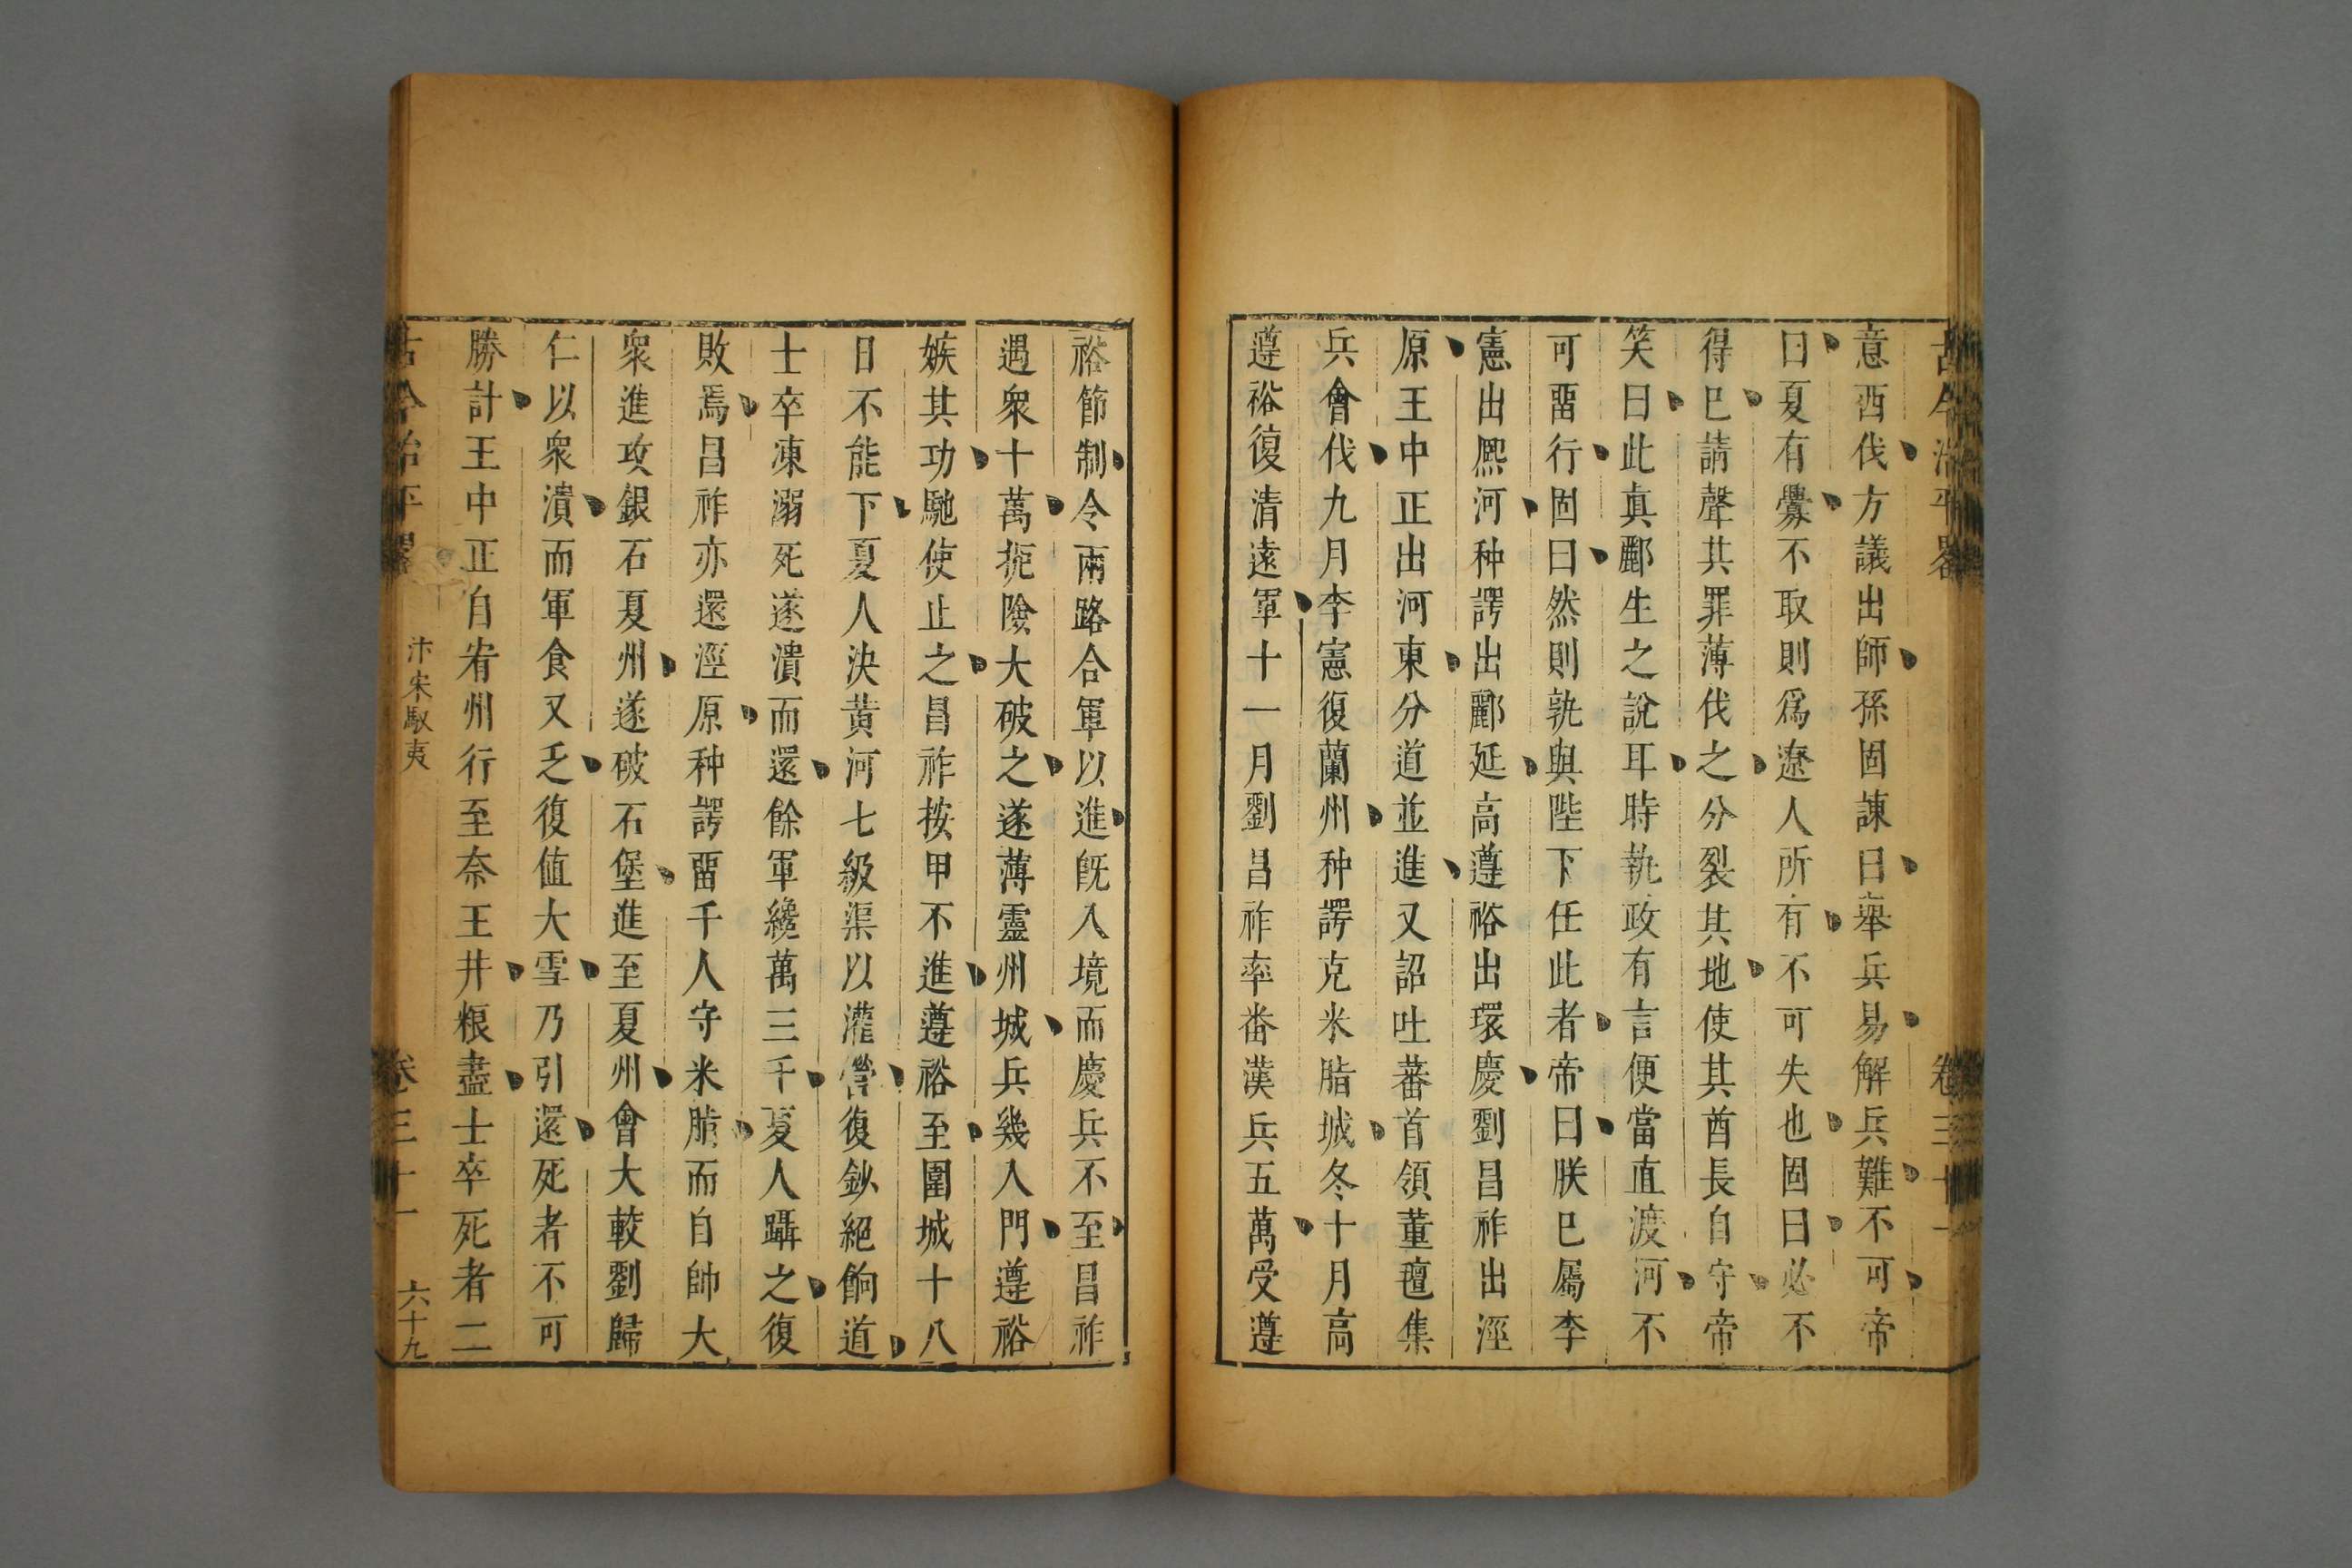 古今治平畧 卷三十一
意西伐方議出師孫固諫曰舉兵易解兵難不可帝
曰夏有釁不取則爲遼人所有不可失也固曰必不
得已請聲其罪薄伐之分裂其地使其酋長自守帝
笑曰此真酈生之說耳時執政有言便當直渡河不
可畱行固曰然則孰與陛下任此者帝曰朕已屬李
憲出熈河种諤出鄜延高遵裕出環慶劉昌祚出涇
原王中正出河東分道並進又詔吐蕃首領董氊集
兵會伐九月李憲復蘭州种諤克米脂城冬十月高
遵裕復清遠軍十一月劉昌祚率番漢兵五萬受遵
裕節制令兩路合軍以進旣入境而慶兵不至昌祚
遇衆十萬扼險大破之遂薄靈州城兵幾入門遵裕
嫉其功馳使止之昌祚按甲不進遵裕至圍城十八
日不能下夏人決黄河七級渠以灌營復鈔絕餉道
士卒凍溺死遂潰而還餘軍纔萬三千夏人躡之復
敗焉昌祚亦還涇原种諤畱千人守米脂而自帥大
衆進攻銀石夏州遂破石堡進至夏州會大較劉歸
仁以衆潰而軍食又乏復值大雪乃引還死者不可
勝計王中正自宥州行至奈王井粮盡士卒死者二
古今治平畧 汴宋馭夷 卷三十一 六十九